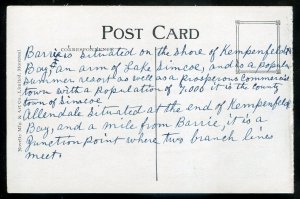 POST CARD
CORRESPONDENCE
Barrie is situated on the shore of Kempenfeldt
Bay, an arm of Lake Simcoe, and is a popular
summer resort as well as a prosperous commercial
town with a population of 7,000 it is the county
town of Simcoe
Allendale situated at the end of Kempenfeldt
Bay, and a mile from Barrie, it is a
junction point where two branch lines
meet.